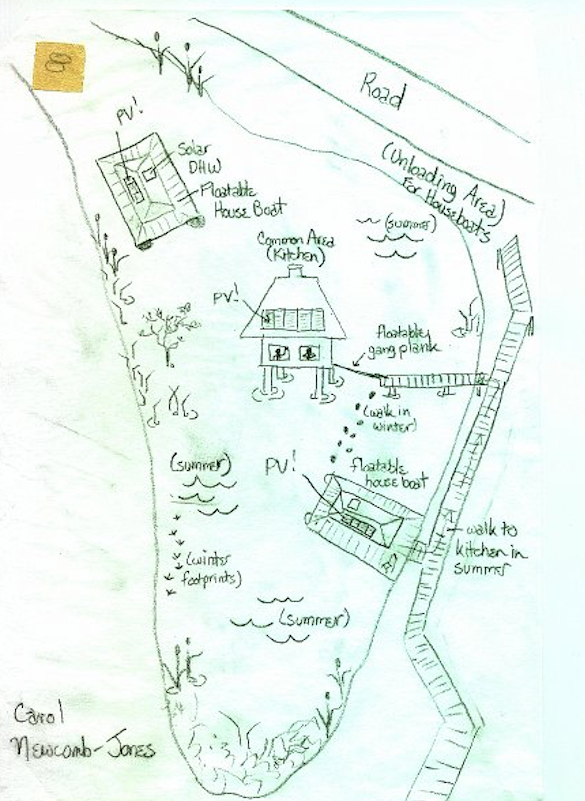 8
Road
PV!
Solar
DHW
Floatable
House Boat
(Unloading Area)
For Houseboats
(summer)
Common Area
(Kitchen)
PV!
floatable
gang plank
(walk in
winter)
(summer)
PV!
floatable
house boat
walk to
kitchen in
summer
(winter
footprints)
(summer)
Carol
Newcomb-Jones